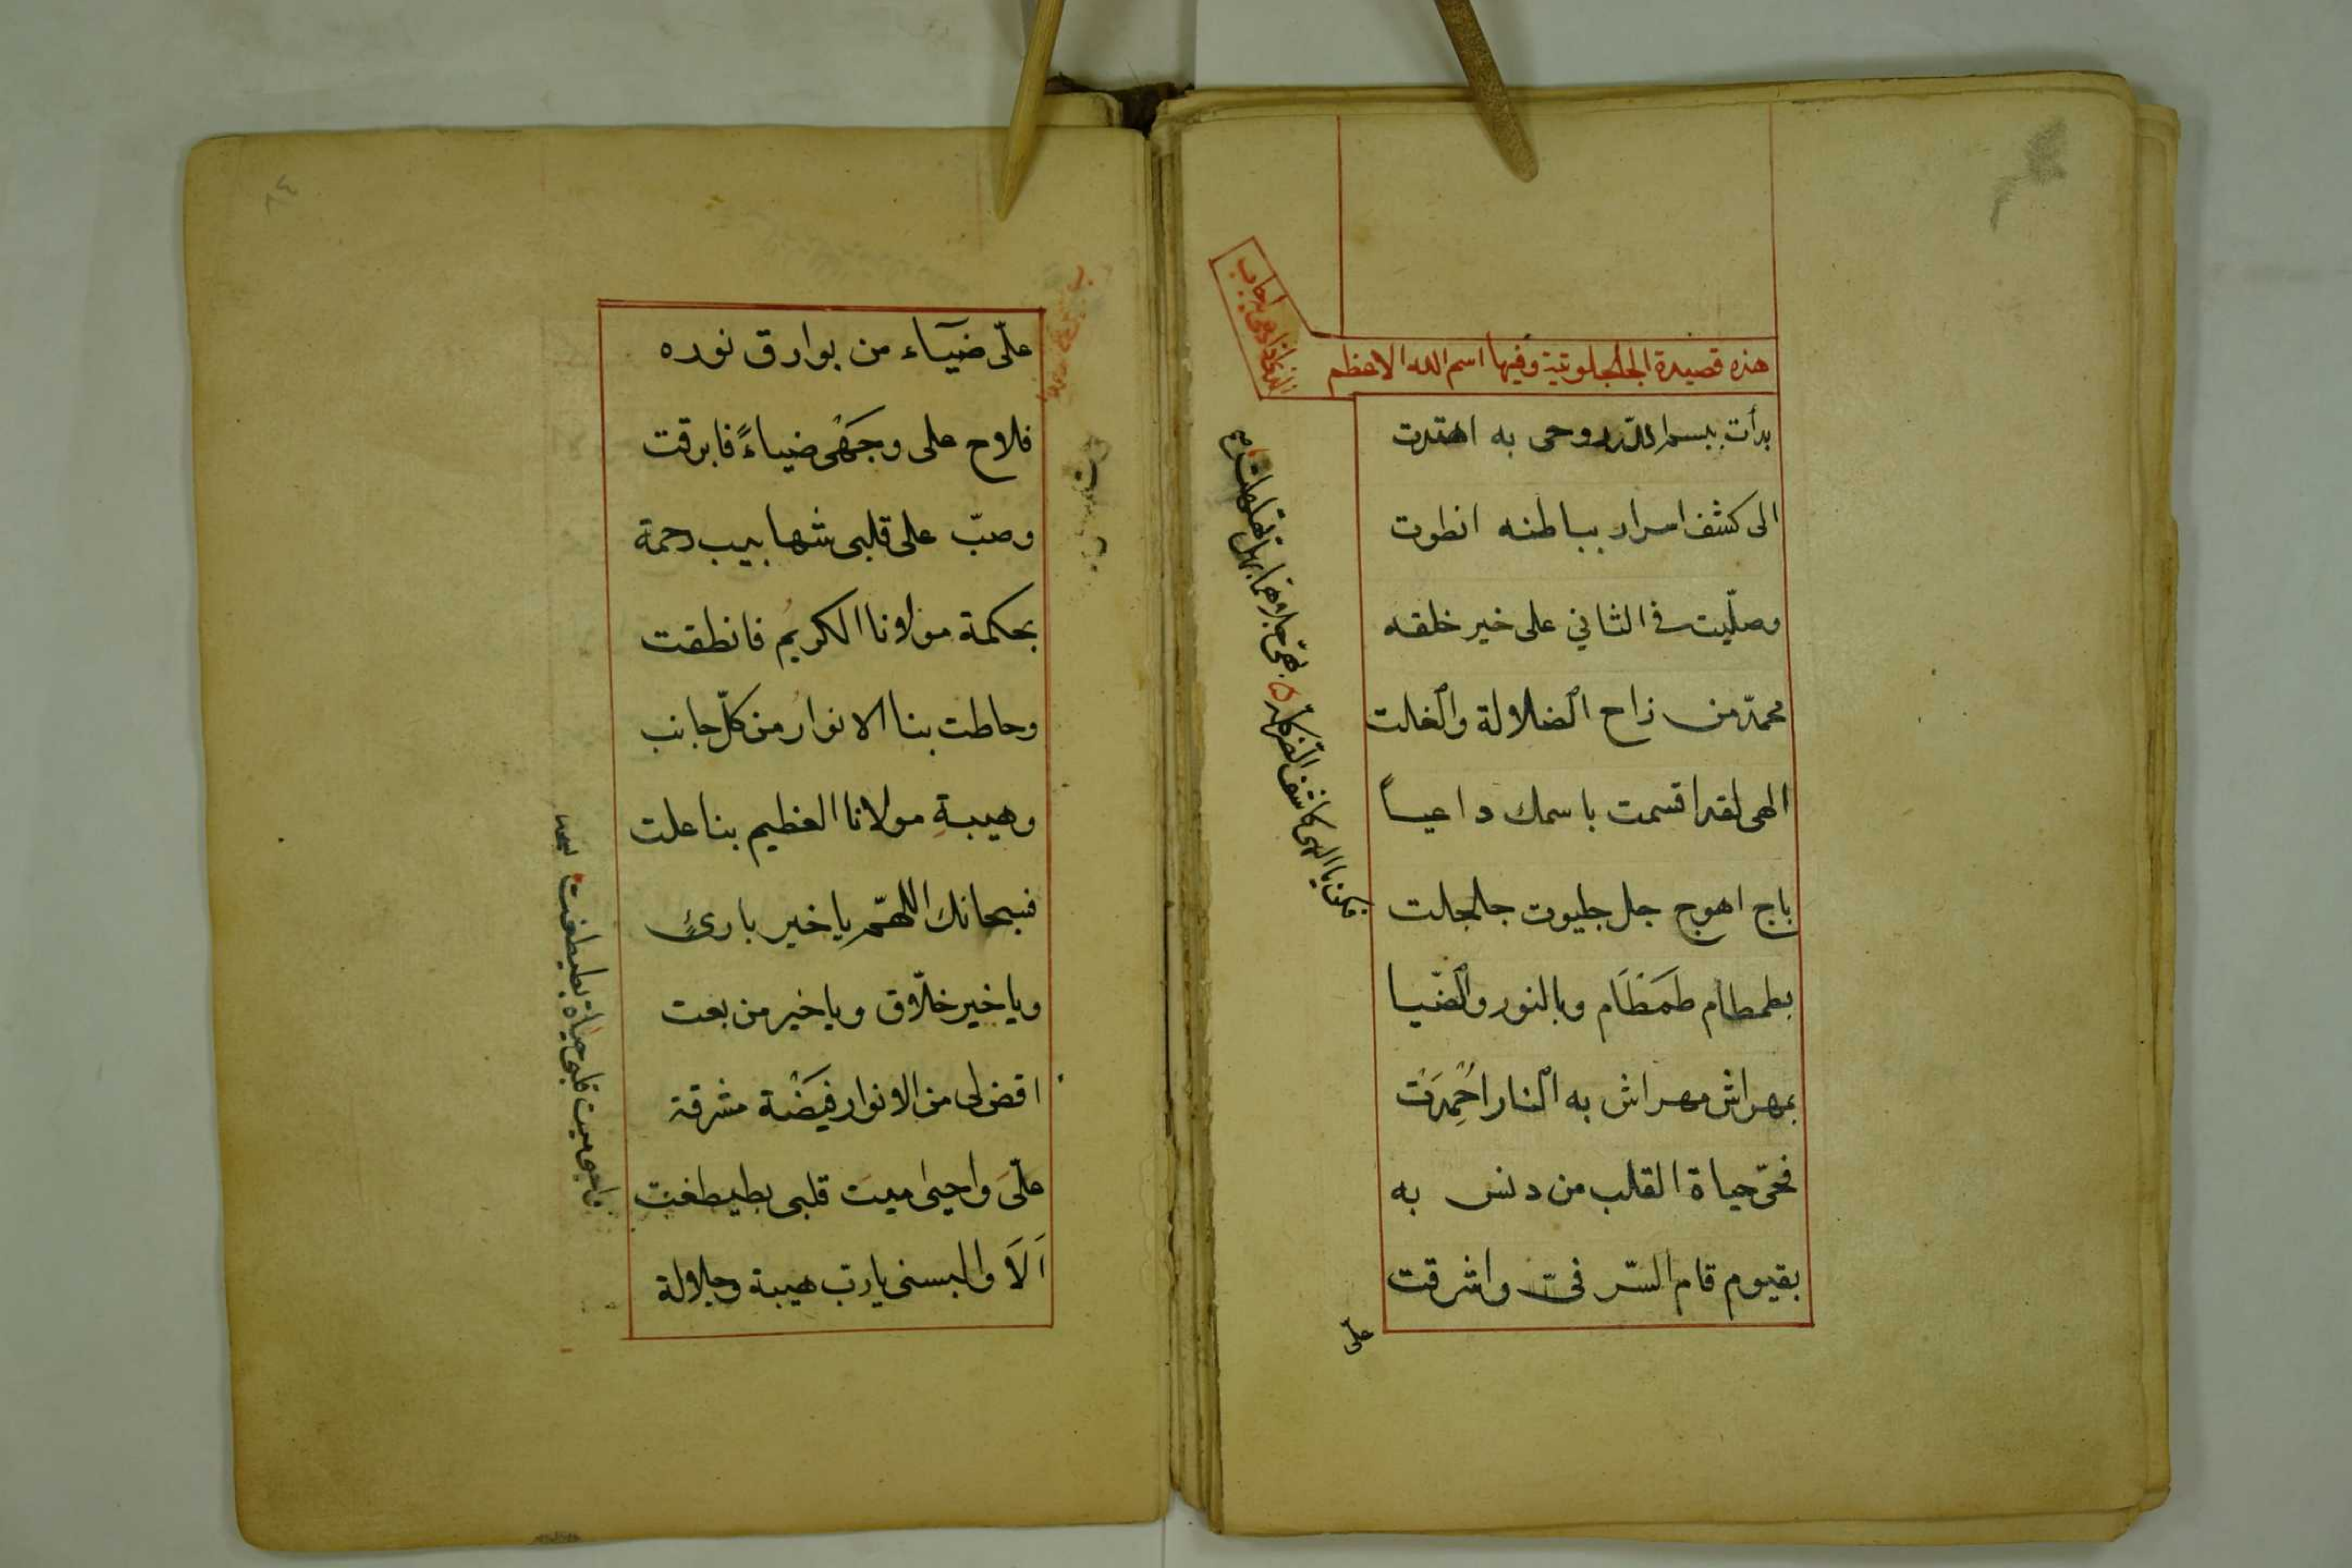 هذه قصيدة الجلجلوتية وفيها اسم الله الاعظم
الذى اذا دعى به اجاب
بدأت ببسم الله روحى به اهتدت
الى كشف اسرار بباطنه انطوت
وصلّيت فى الثاني على خير خلقه
محمّد من زاح الضلالة والغلت
الهى لقد اقسمت باسمك داعياً
باج اهوج جل جليوت جلجلت
بطمطام طَمَطَام وبالنور والضّيا
بمهراش مهراش به النار اخمِدَت
فحىّ حياة القلب من دنس به
بقيوم قام السّر فىّ واشرقت
فكن يا الهى كاشف الضر
علىّ
علىّ ضيآء من بوارق نوره
فلاح على وجَهْى ضياءً فابرقت
وصبّ على قلبى شهابيب رحمة
بحكمة مولانا الكريمُ فانطقت
وحاطت بنا الانوارُ من كلّ جانب
وهيبةِ مولانا العظيم بنا علت
فسبحانك اللهمّ يا خير بارئٍ
ويا خير خلّاق ويا خير من بعت
اقض لى من الانوار فيَضْة مشرقة
علىّ واحيى ميت قلبى بطيطغت
اَلَا والبسنى يا ربّ هيبة وجلالة
واحى ميت قلبى حياة بطيطغت
٨٤